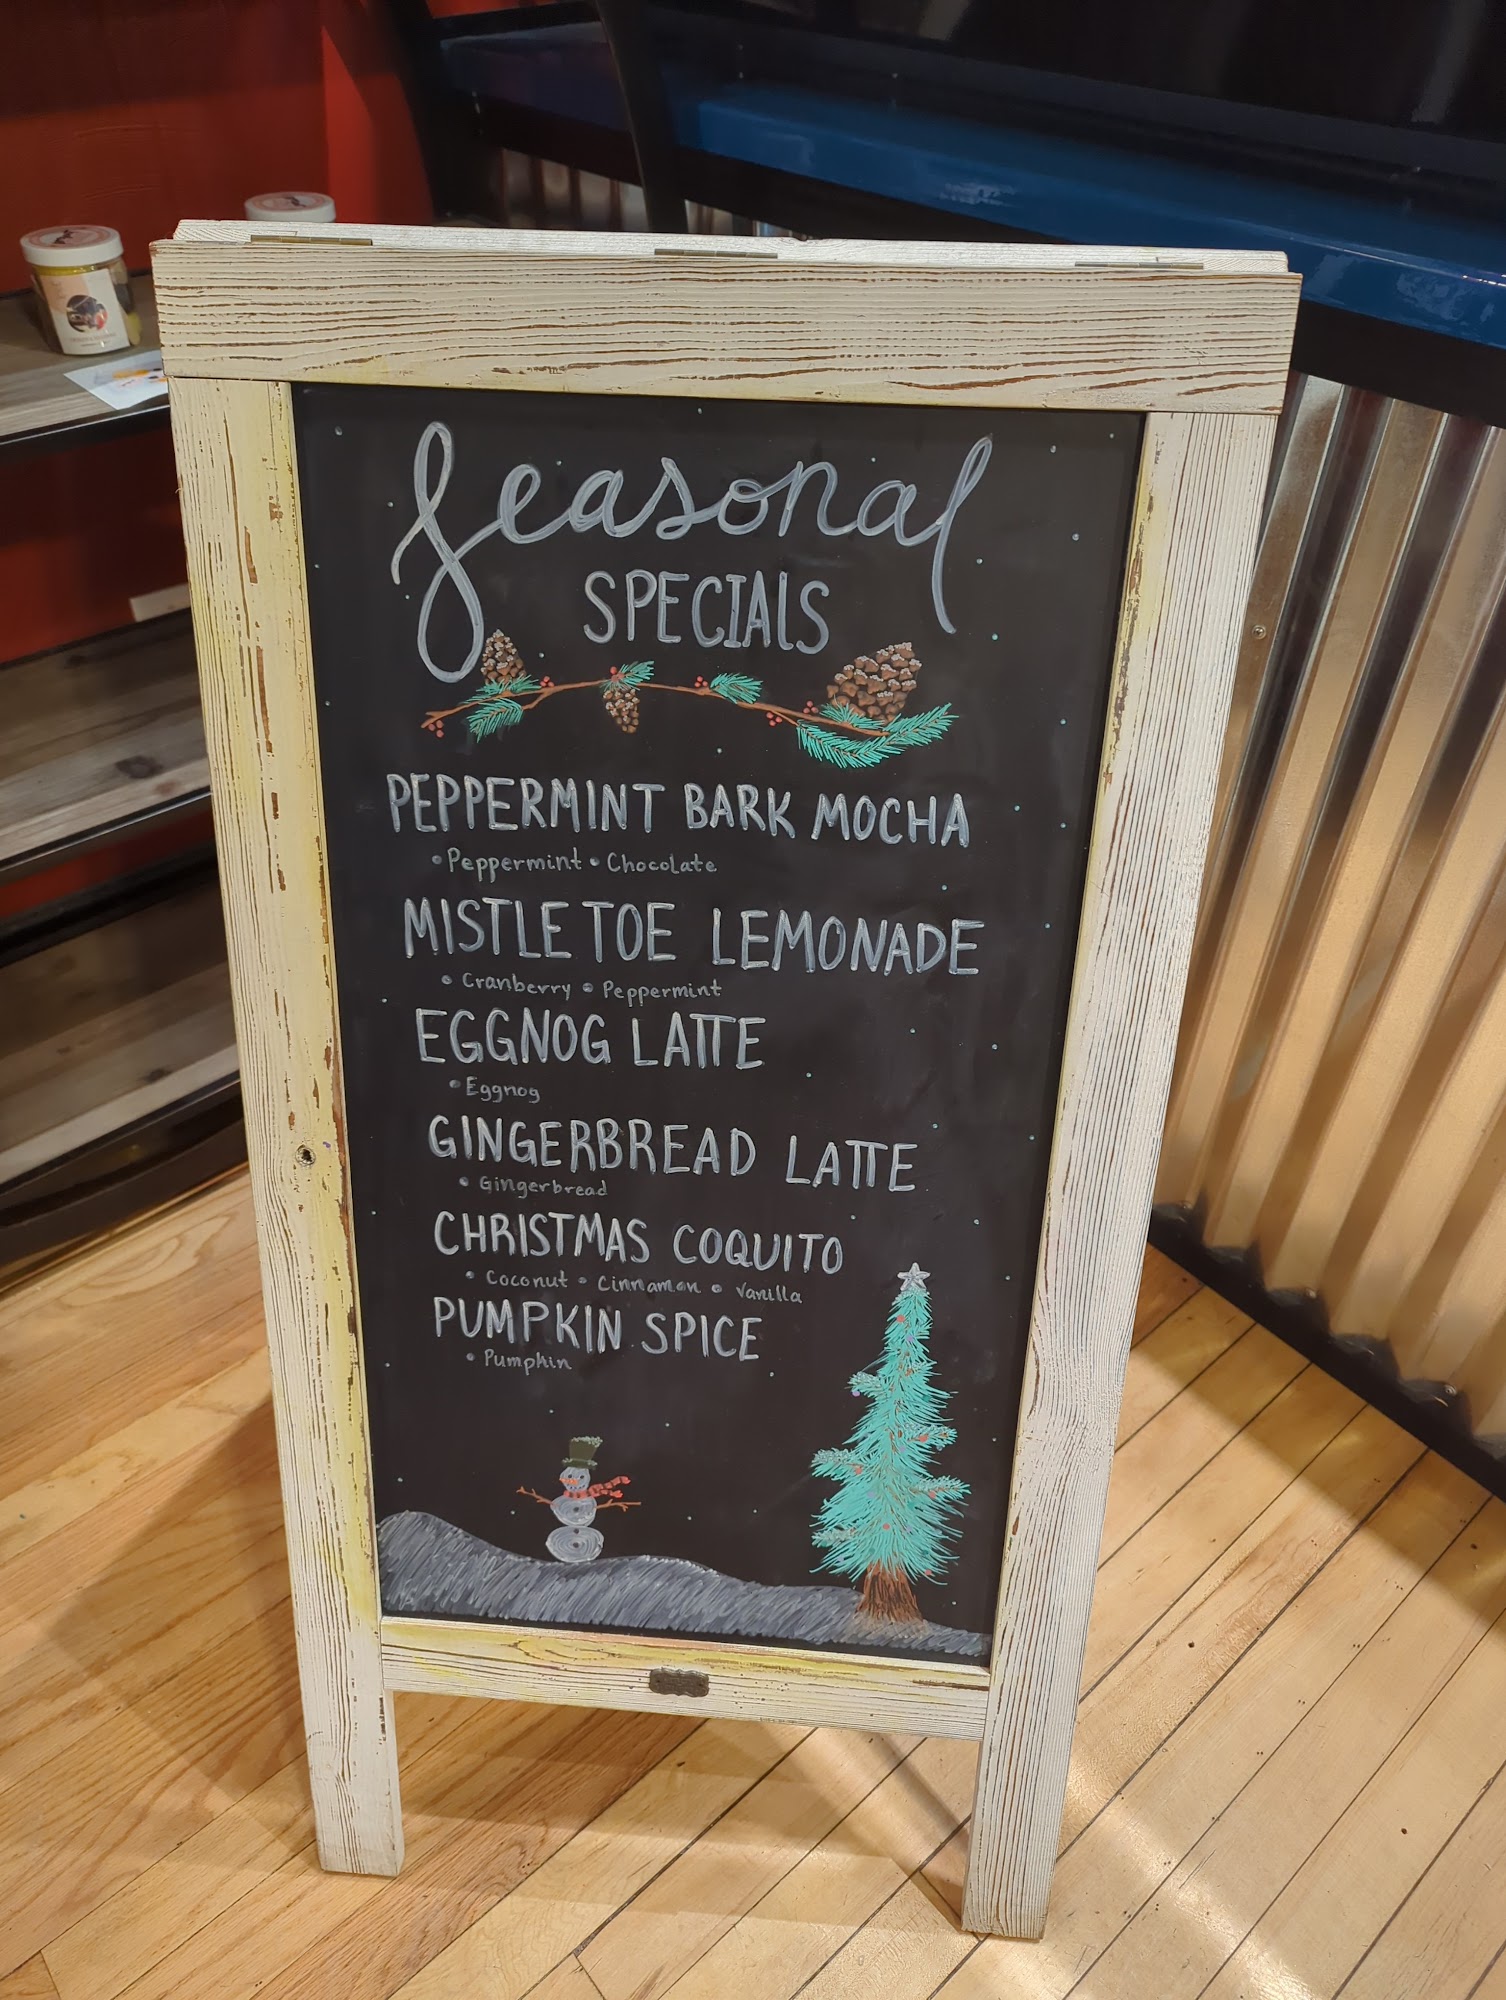 Seasonal
SPECIALS
PEPPERMINT BARK MOCHA
• Peppermint • Chocolate
MISTLETOE LEMONADE
• Cranberry • Peppermint
EGGNOG LATTE
• Eggnog
GINGERBREAD LATTE
• Gingerbread
CHRISTMAS COQUITO
• Coconut • Cinnamon • Vanilla
PUMPKIN SPICE
• Pumpkin